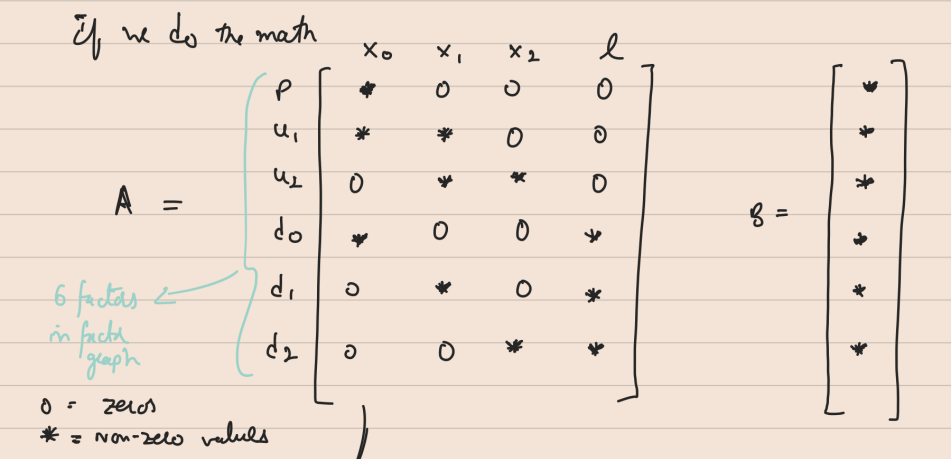 if we do the math
x₀ x₁ x₂ l
p * 0 0 0 *
u₁ * * 0 0 *
u₂ 0 * * 0 *
A =
B =
d₀ * 0 0 * *
d₁ 0 * 0 * *
6 factors
in factor
graph
d₂ 0 0 * * *
0 = zeros
* = non-zero values